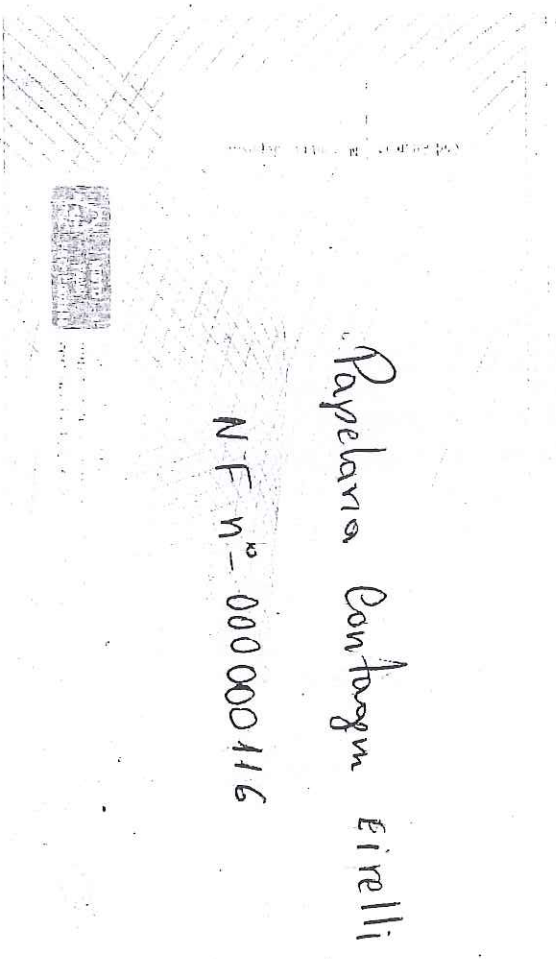 Papelaria Contagem Eirelli
NF nº 000000116